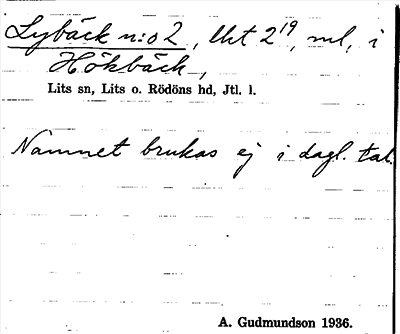 Lybäck n:o 2, Urt 2¹⁹, ml, i
Hökbäck,
Lits sn, Lits o. Rödöns hd, Jtl. l.
Namnet brukas ej i dagl. tal.
A. Gudmundson 1936.